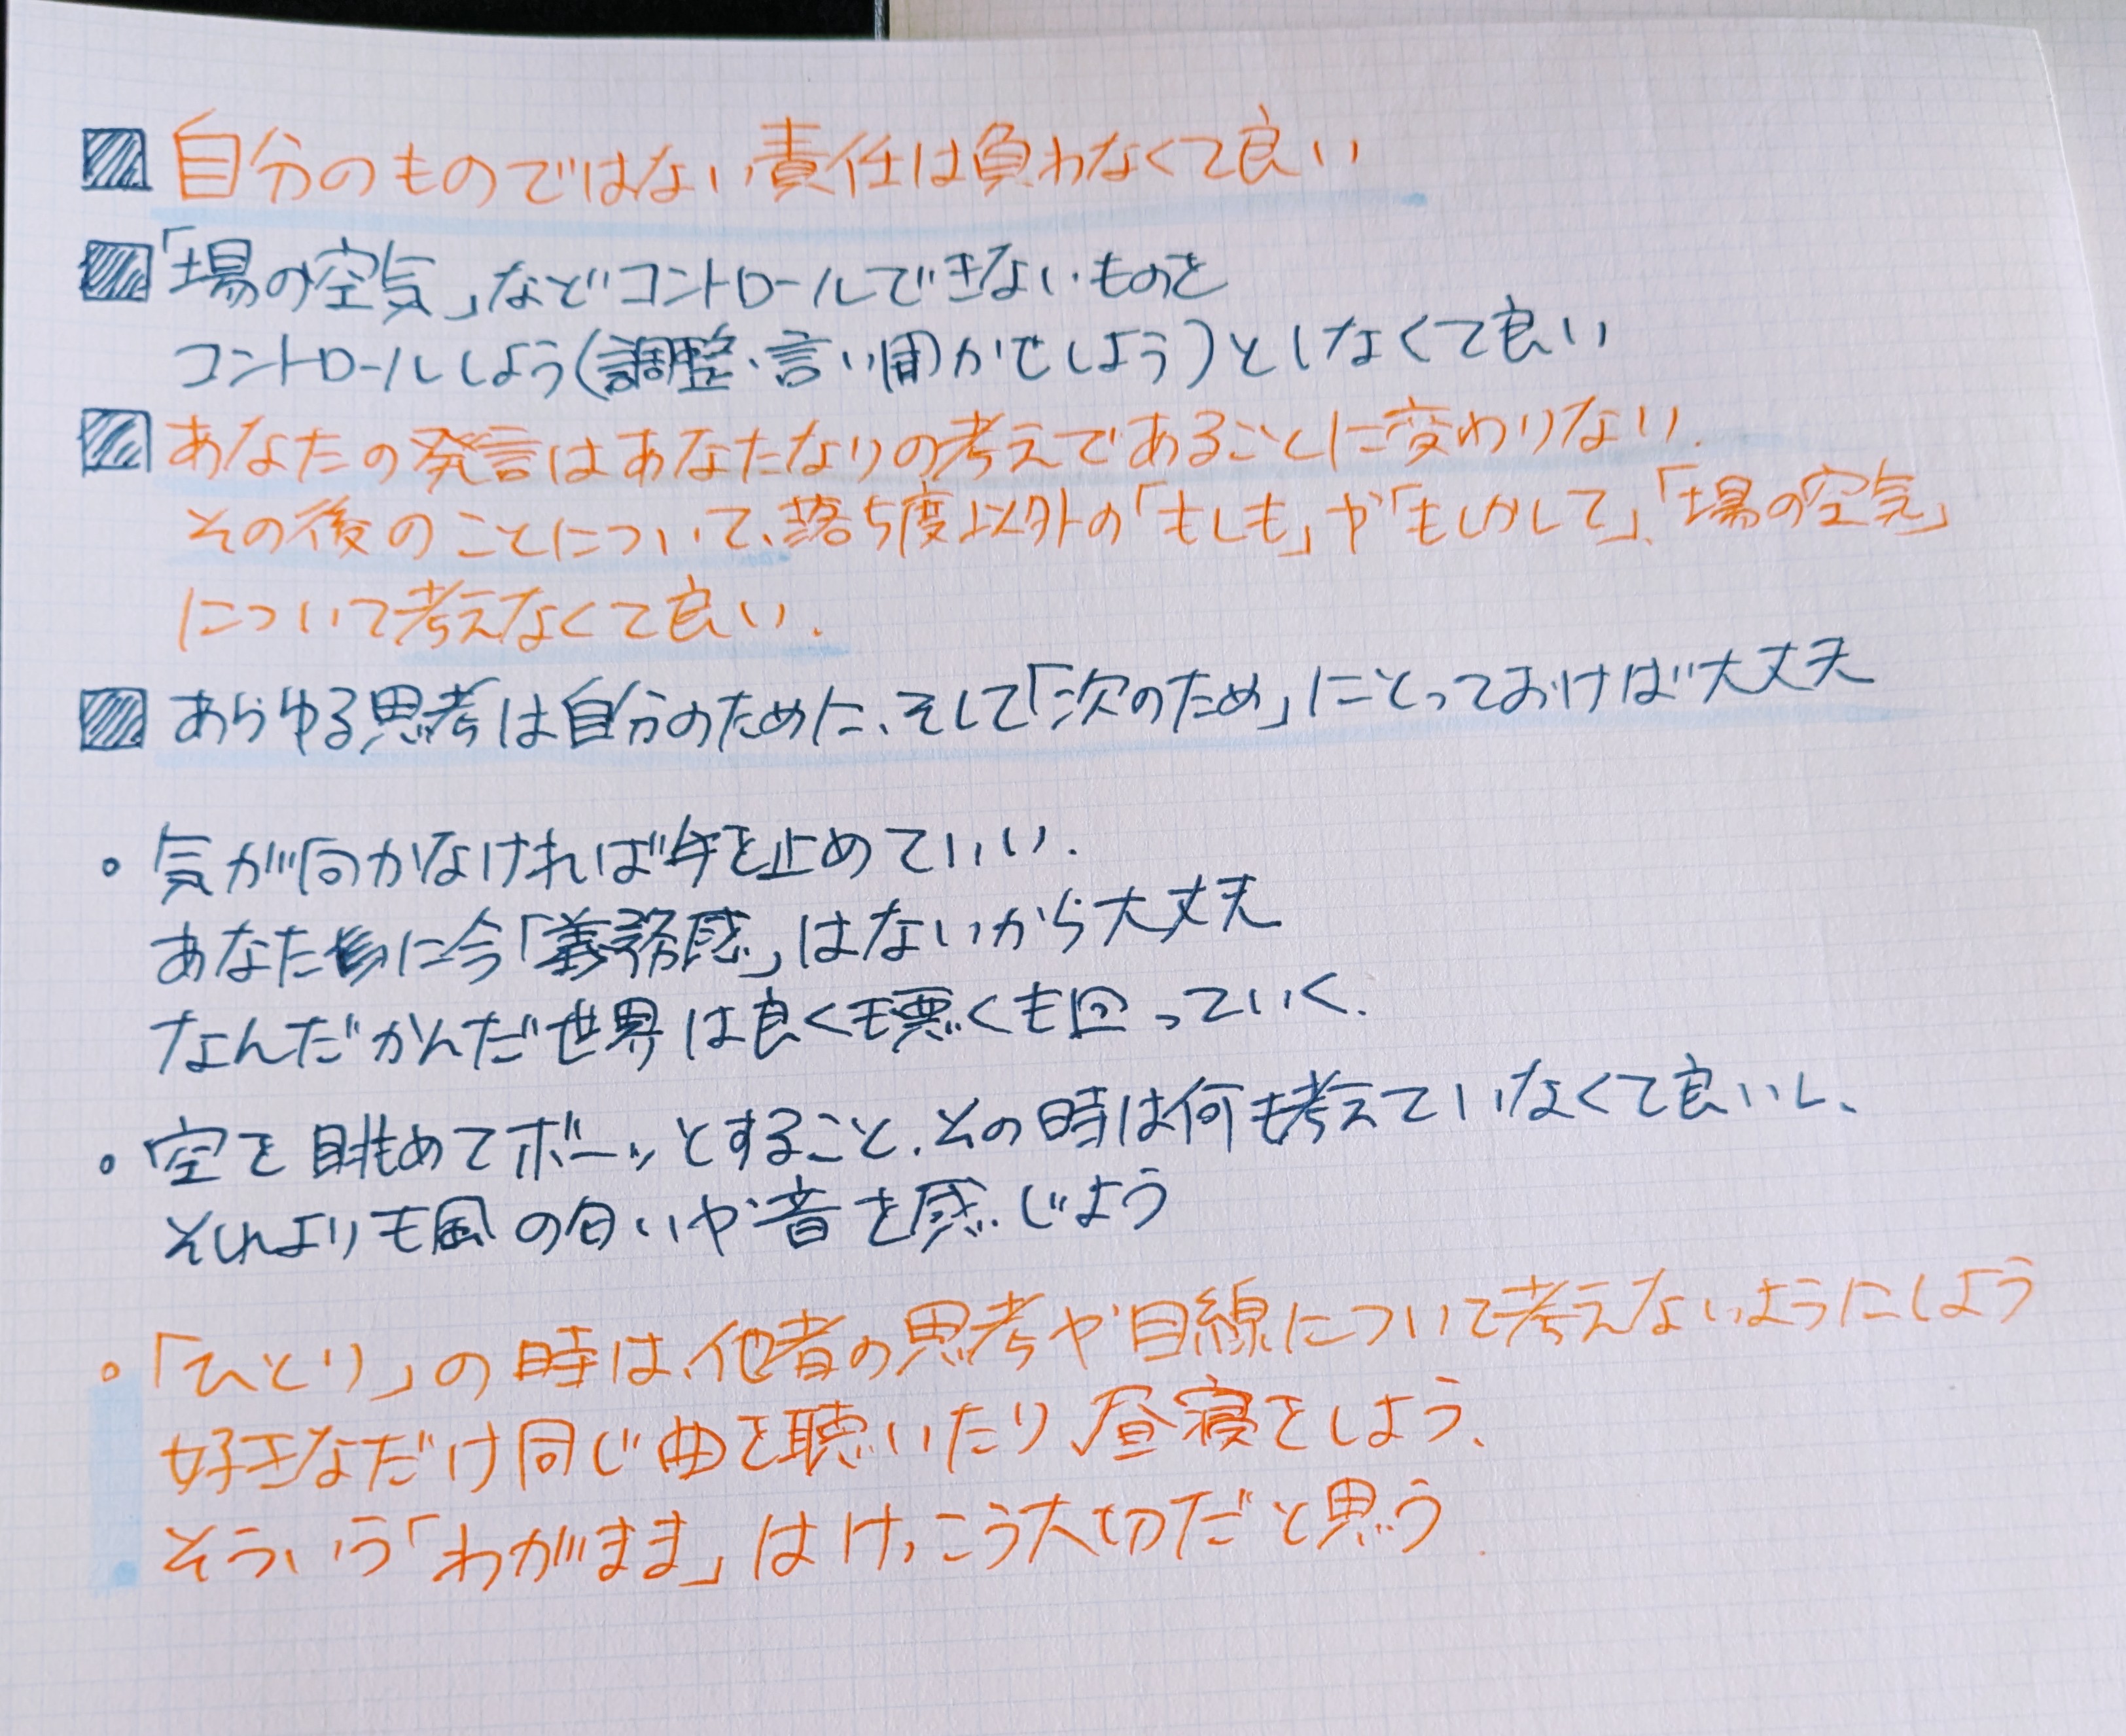 自分のものではない責任は負わなくて良い
「場の空気」などコントロールできないものを
コントロールしよう(調整・言い聞かせしよう)としなくて良い
あなたの発言はあなたなりの考えであることに変わりない.
その後のことについて、落ち度以外の「もしも」や「もしかして」、「場の空気」
について考えなくて良い.
あらゆる思考は自分のために、そして「次のため」にとっておけば大丈夫
・気が向かなければ手を止めていい.
あなたに今「義務感」はないから大丈夫
なんだかんだ世界は良くも悪くも回っていく.
・空を眺めてボーッとすること.その時は何も考えていなくて良いし、
それよりも風の匂いや音を感じよう
・「ひとり」の時は、他者の思考や目線について考えないようにしよう
好きなだけ同じ曲を聴いたり、昼寝をしよう、
そういう「わがまま」はけっこう大切だと思う.